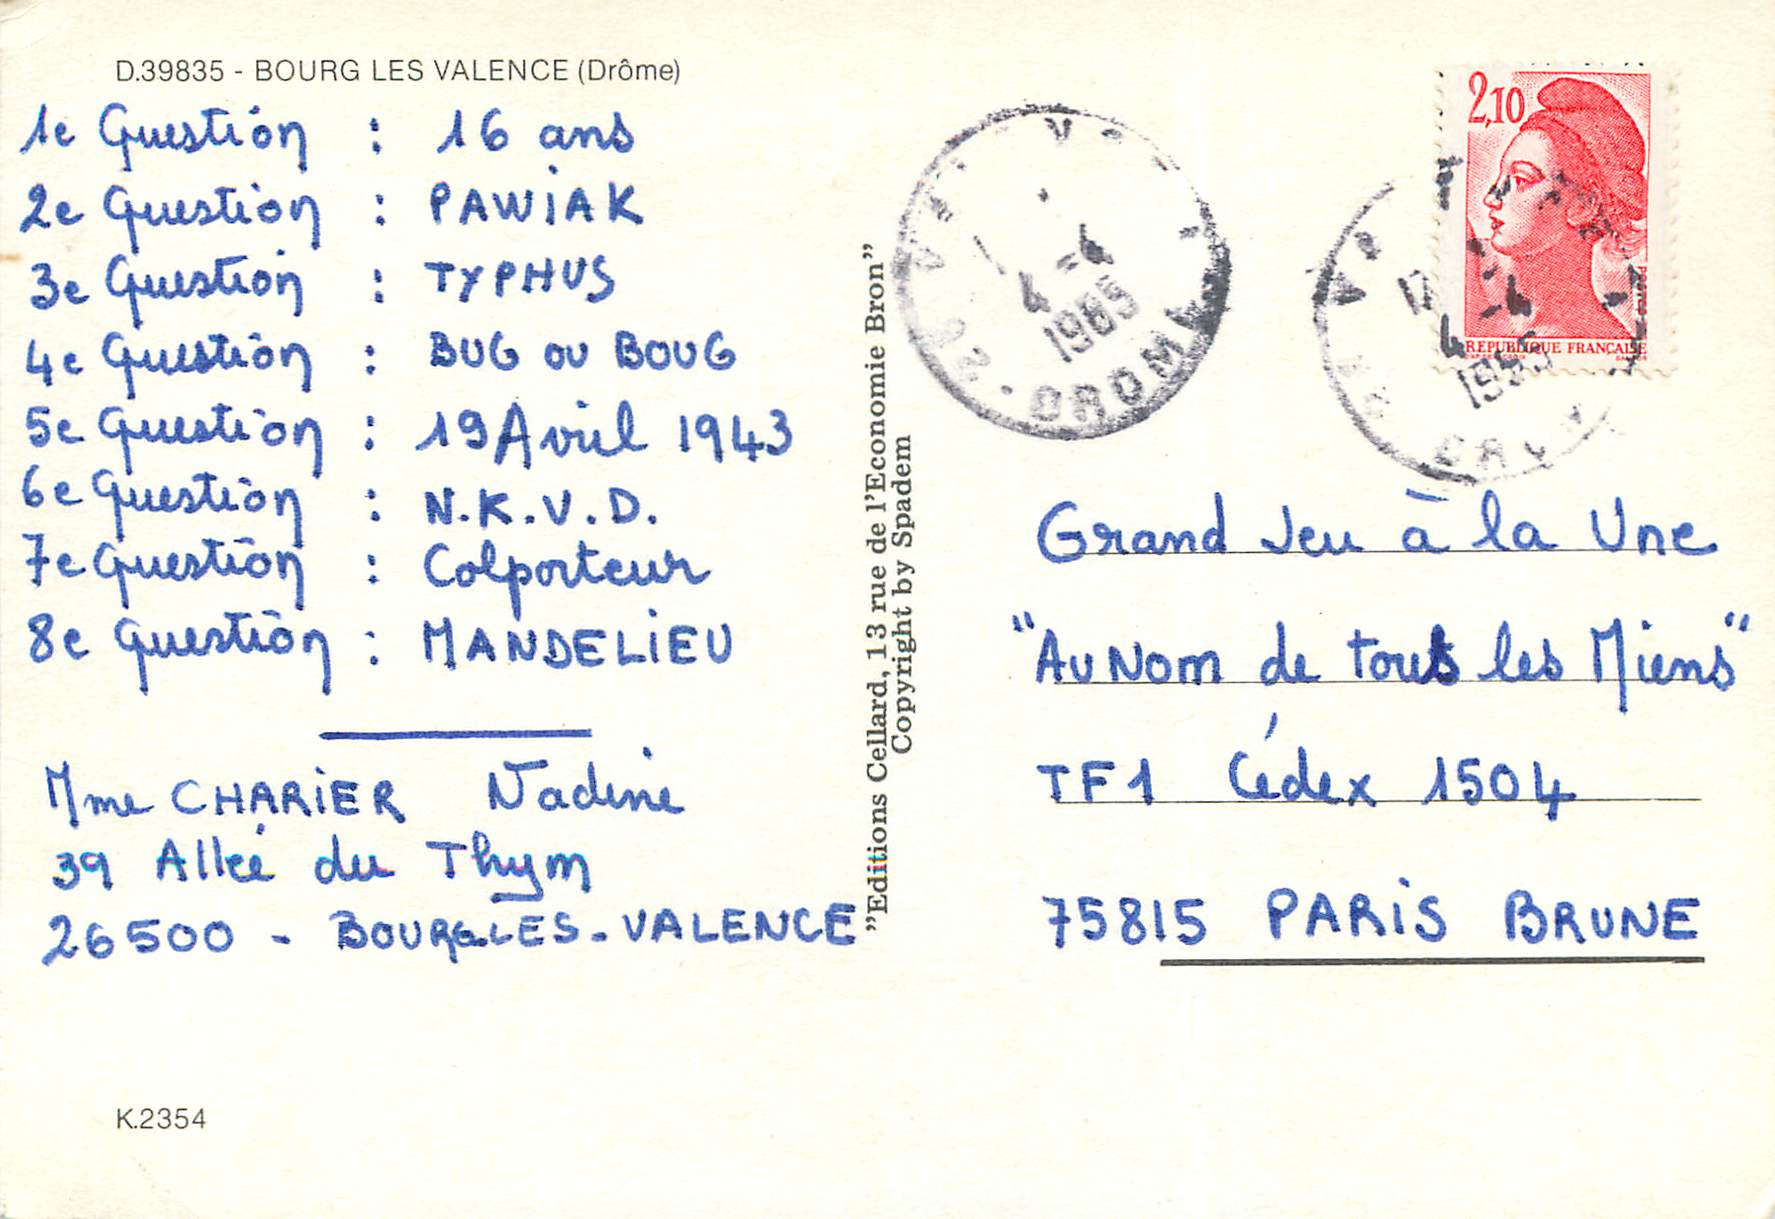 D.39835 - BOURG LES VALENCE (Drôme)
1e Question : 16 ans
2e Question : PAWIAK
3e Question : TYPHUS
4e Question : BUG ou BOUG
5e Question : 19 Avril 1943
6e Question : N.K.V.D.
7e Question : Colporteur
8e Question : MANDELIEU
Mme CHARIER Nadine
39 Allée du Thym
26500 - BOURG-LES-VALENCE
K.2354
"Editions Cellard, 13 rue de l'Economie Bron"
Copyright by Spadem
4-4
1985
DROME
2,10
REPUBLIQUE FRANÇAISE
Grand Jeu à la Une
"Au Nom de tous les Miens"
TF1 Cédex 1504
75815 PARIS BRUNE